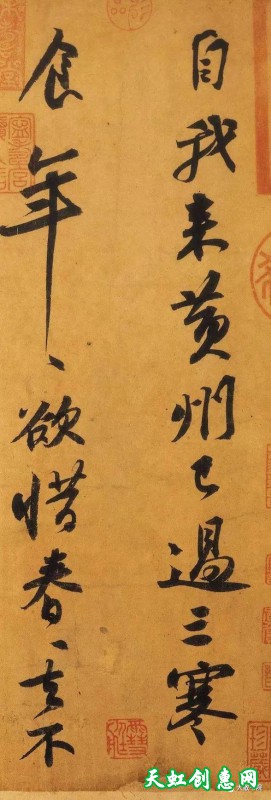 自我来黄州已過三寒
食年〻欲惜春〻去不
天虹创惠网